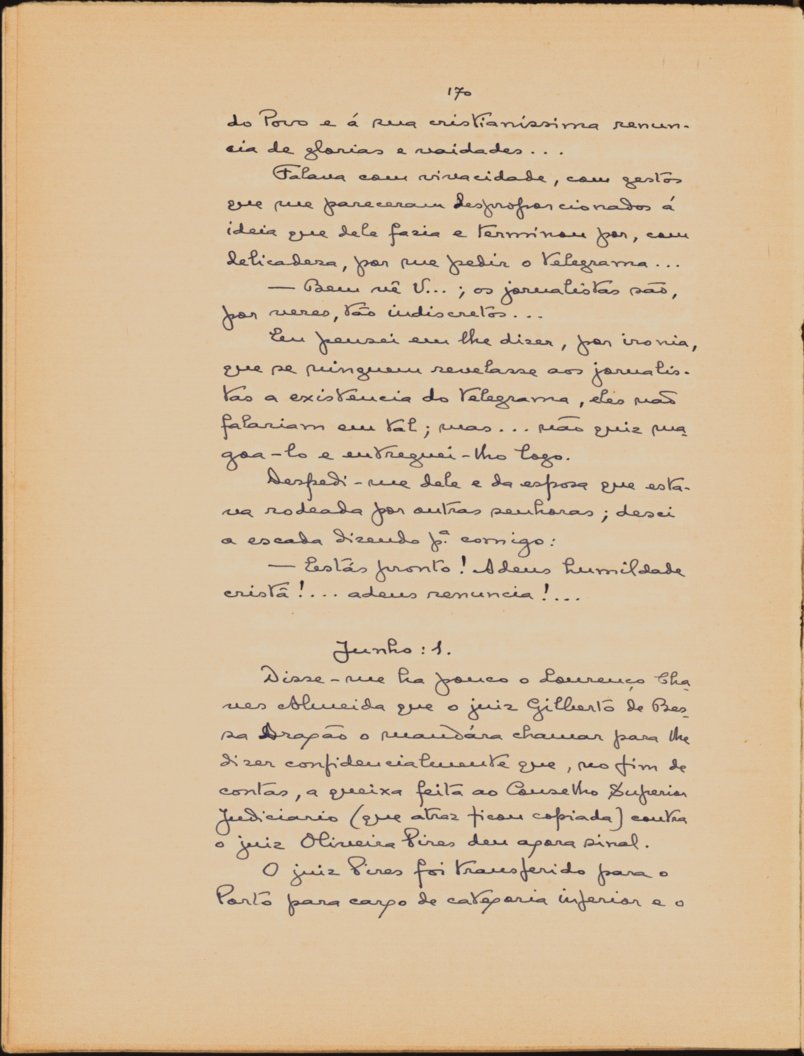 170
do Povo e á sua cristianíssima renun-
cia de glorias e vaidades...
Falava com vivacidade, com gestos
que me pareceram desproporcionados á
ideia que dele fazia e terminou por, com
delicadeza, por me pedir o telegrama...
— Bem vê V...; os jornalistas são,
por vezes, tão indiscretos...
Eu pensei em lhe dizer, por ironia,
que se ninguem revelasse aos jornalis-
tas a existencia do telegrama, eles não
falariam em tal; mas... não quiz ma-
goa-lo e entreguei-lho logo.
Despedi-me dele e da esposa que esta-
va rodeada por outras senhoras; desci
a escada dizendo p.ª comigo:
— Estás pronto! Adeus humildade
cristã!... adeus renuncia!...
Junho: 1.
Disse-me ha pouco o Lourenço Cha-
ves Almeida que o juiz Gilberto de Bes-
sa Aragão o mandára chamar para lhe
dizer confidencialmente que, no fim de
contas, a queixa feita ao Conselho Superior
Judiciario (que atraz ficou copiada) contra
o juiz Oliveira Pires deu agora sinal.
O juiz Pires foi transferido para o
Porto para cargo de categoria inferior e o